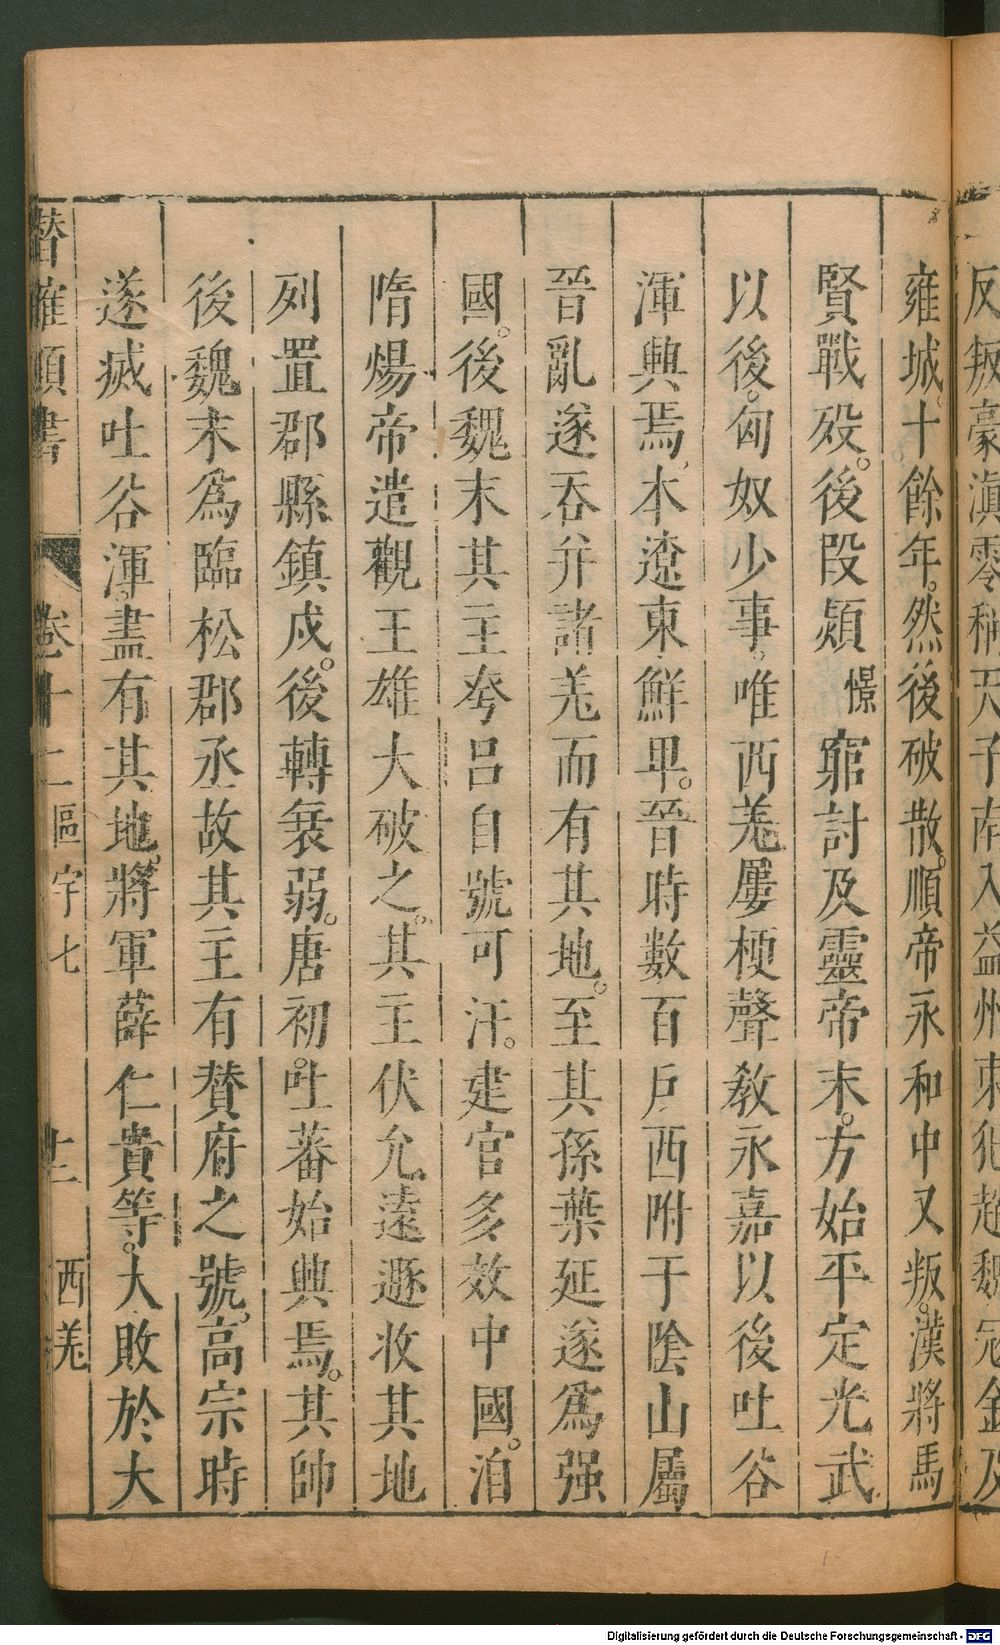 反叛豪滇零稱天子南入益州東犯趙魏寇金及
雍城十餘年。然後破散。順帝永和中又叛。漢將馬
賢戰歿。後段熲憬窮討及靈帝末。方始平定光武
以後。匈奴少事。唯西羗屢梗聲敎永嘉以後吐谷
渾興焉。本遼東鮮卑。晉時數百戶西附于陰山屬
晉亂遂吞幷諸羗而有其地。至其孫葉延遂爲强
國。後魏末其主夸呂自號可汗。建官多效中國。洎
隋煬帝遣觀王雄大破之。其主伏允遠遯收其地
列置郡縣鎮戍。後轉衰弱。唐初。吐蕃始興焉。其帥
後魏末爲臨松郡丞故其主有贊府之號。高宗時
遂滅吐谷渾。盡有其地。將軍薛仁貴等。大敗於大
潛確類書 卷十二 區宇七 十二 西羗
Digitalisierung gefördert durch die Deutsche Forschungsgemeinschaft - DFG